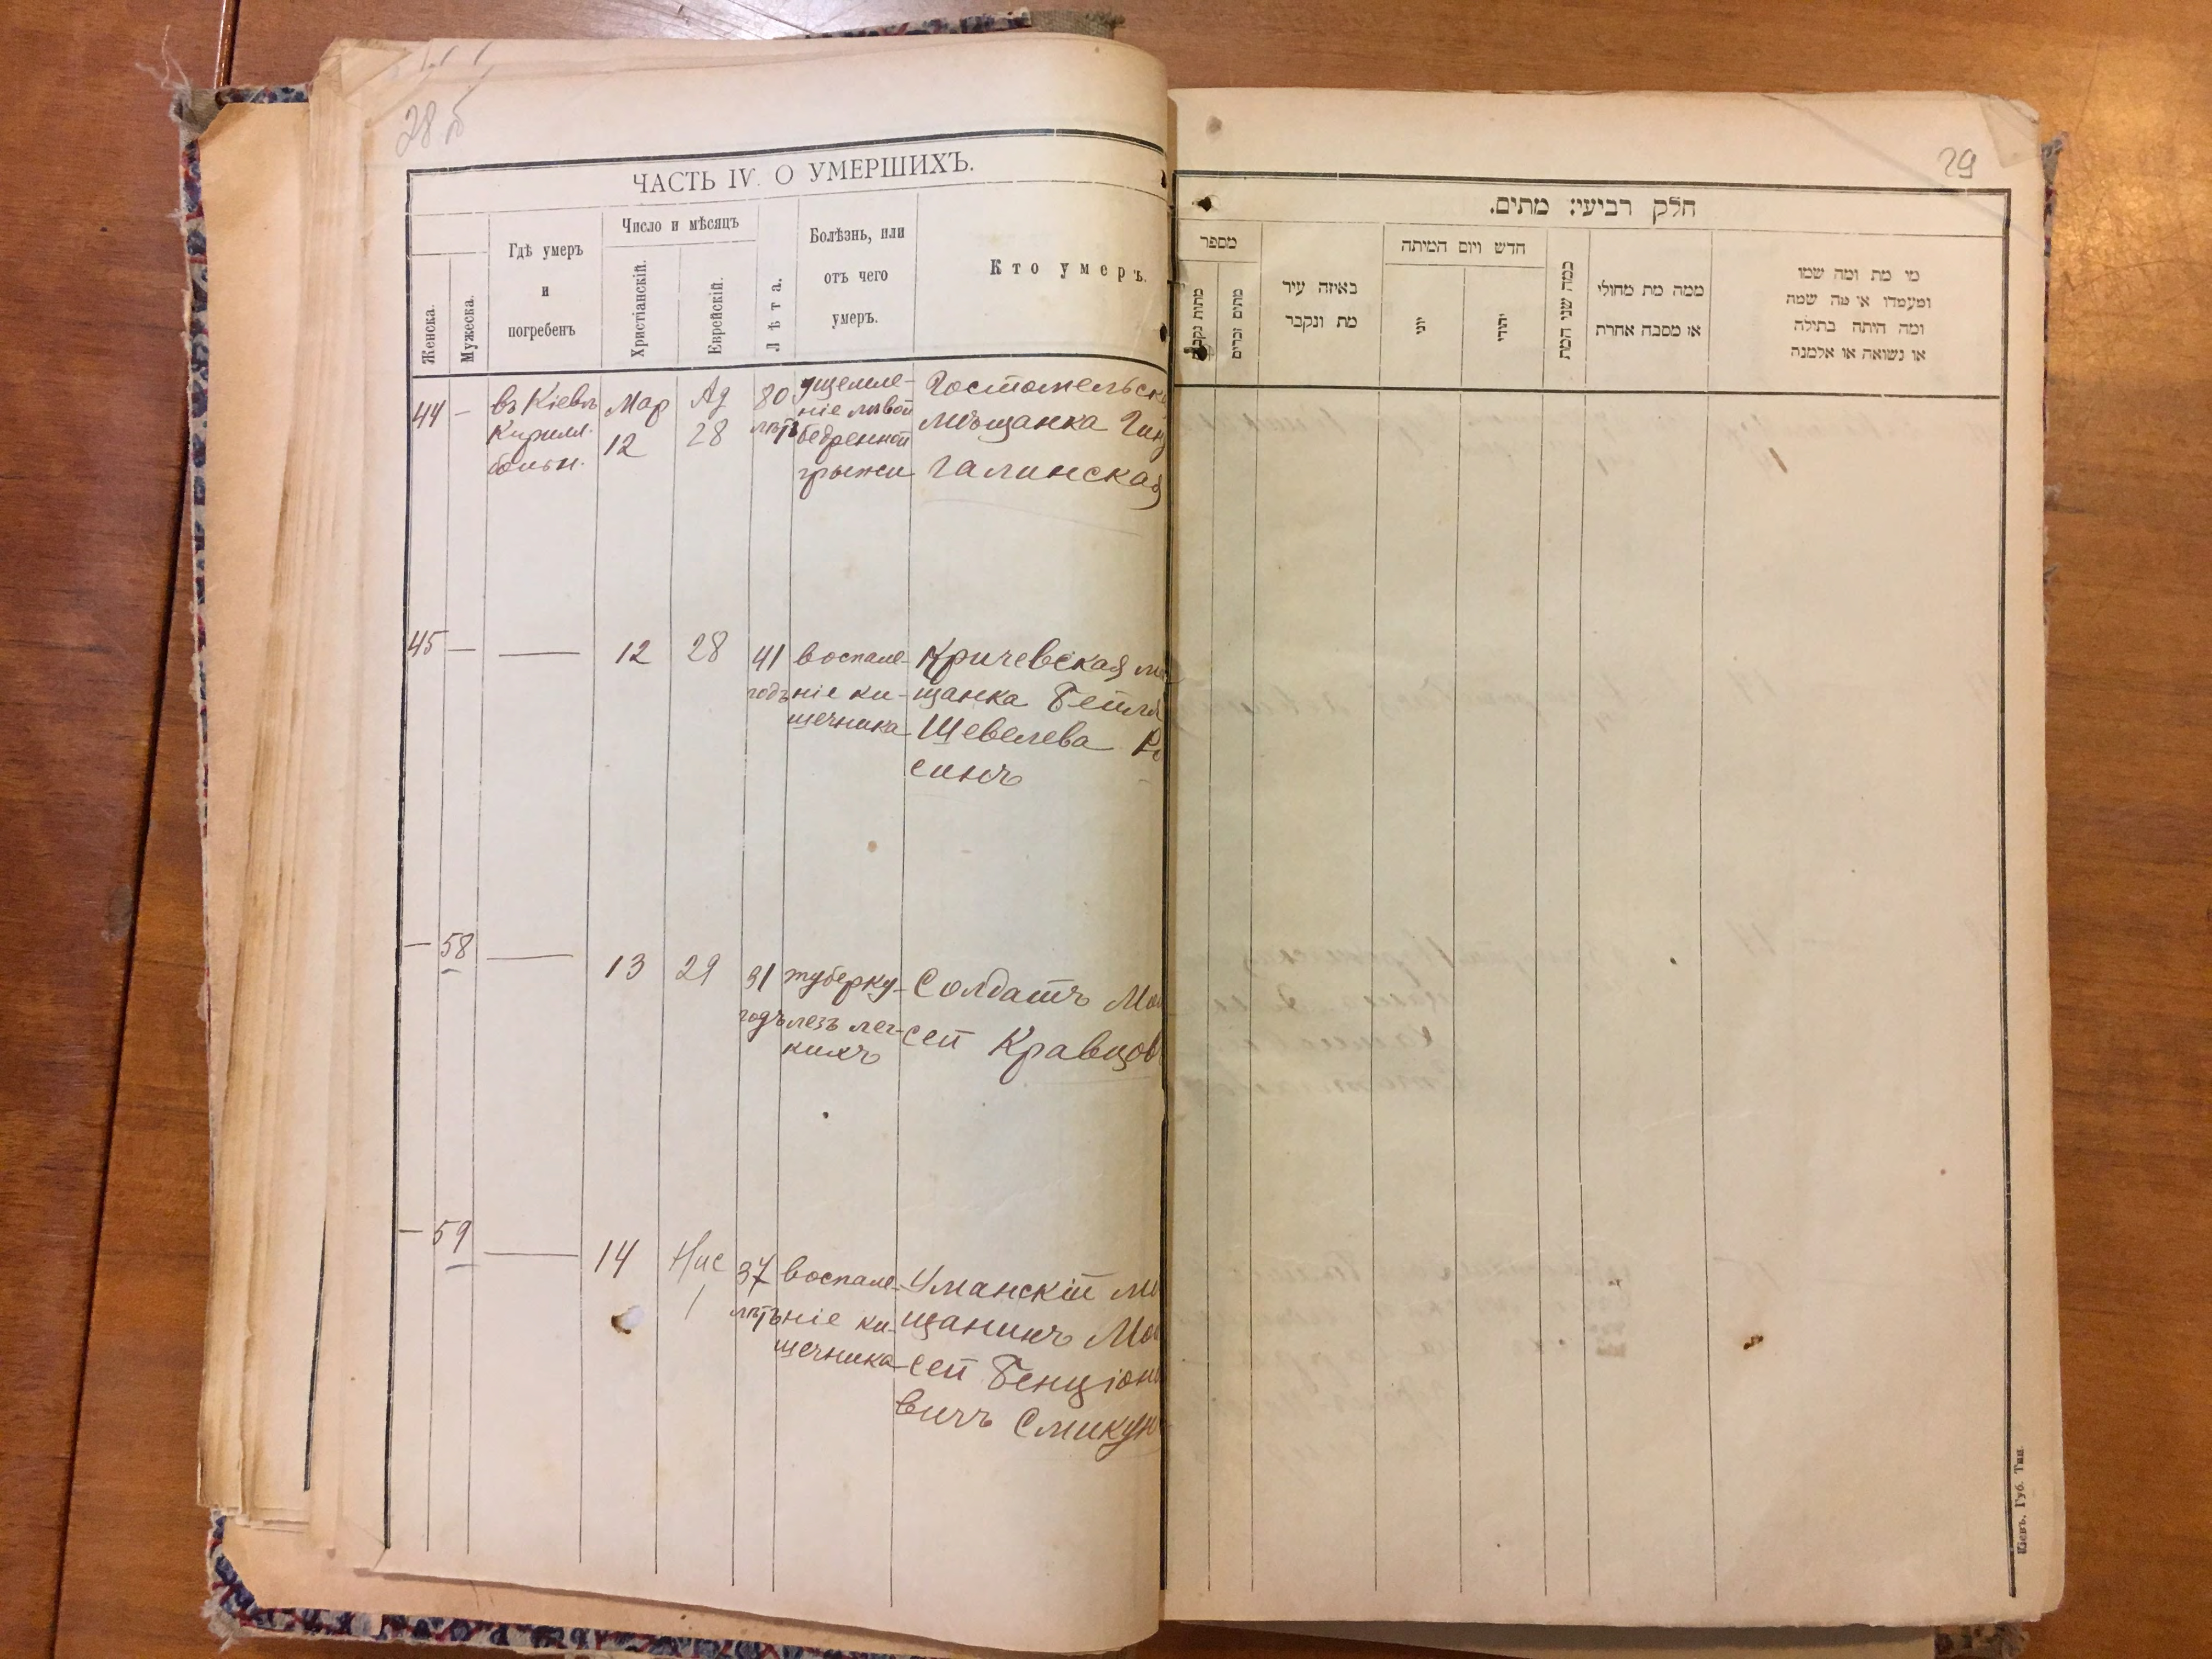 28б
ЧАСТЬ IV. О УМЕРШИХЪ.
Женска.
Мужеска.
Гдѣ умеръ
и
погребенъ
Число и мѣсяцъ
Христіанскій.
Еврейскій.
Лѣта.
Болѣзнь, или
отъ чего
умеръ.
Кто умеръ.
44 —
въ Кіевѣ
Кирилл.
больн.
Мар
12
Ад
28
80
лѣтъ
ущемле-
ніе лѣвой
бедренной
грыжи
Гостомельск
мѣщанка
Галинская
45 — —— 12 28
41
годъ
воспале-
ніе ки-
шечника
Кричевская мѣ
щанка Бейля
Шевелева Ро
синъ
— 58 —— 13 29
31
годъ
туберку-
лезъ лег-
кихъ
Солдатъ Мои
сей Кравцов
— 59 —— 14
Нис
1
37
лѣтъ
воспале-
ніе ки-
шечника
Уманскій мѣ
щанинъ Мои
сей Бенціоно
вичъ Смикун
29
חלק רביעי: מתים.
מספר
מתות נקבות
מתים זכרים
באיזה עיר
מת ונקבר
חדש ויום המיתה
יוני
יהודי
במה שני המת
ממה מת מחולי
או מסבה אחרת
מי מת ומה שמו
ומעמדו או מה שמה
ומה היתה בתילה
או נשואה או אלמנה
Кіевъ, Губ. Тип.